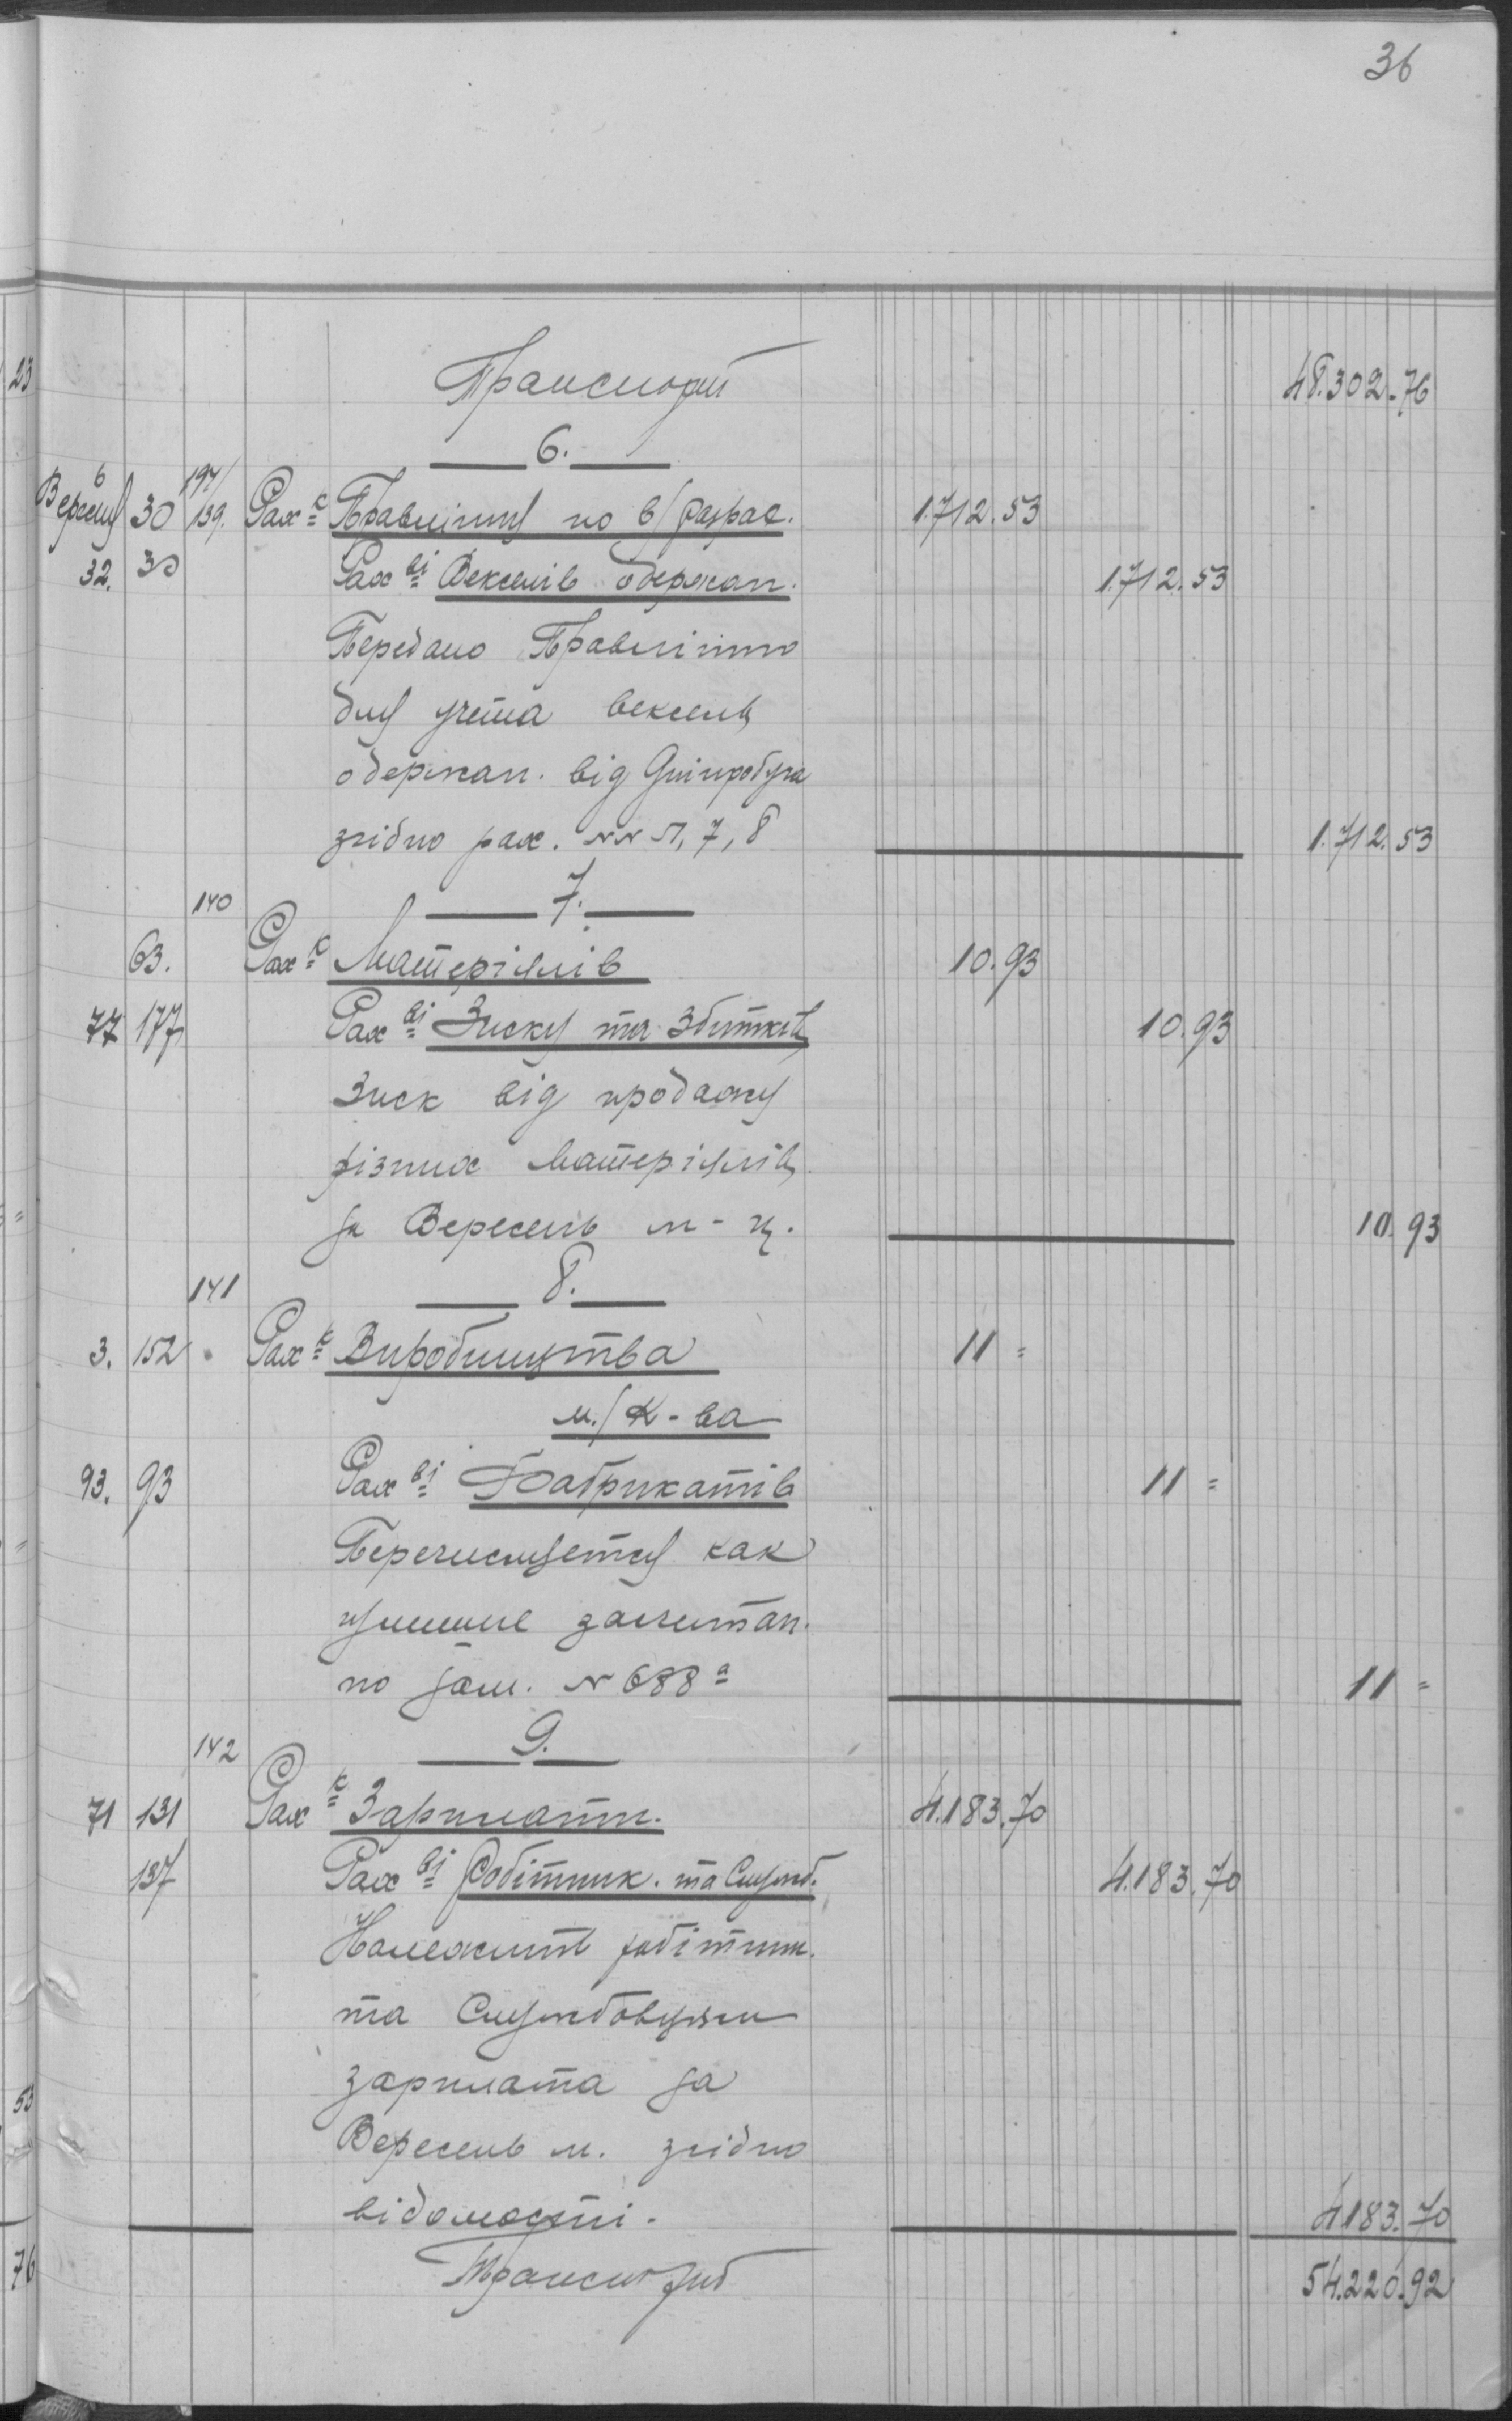 36
Транспорт 48.302.76
6.
Вересня 30 139. Рах-к Правління по в/розрах. 1.712.53
32. 30 Рах-ві Векселів одержан. 1.712.53
Передано Правлінню
для учета векселя
одержан. від Дніпробуга
згідно рах. NN 7, 8 1.712.53
140 7.
63. Рах-к Матеріялів 10.93
77 177 Рах-ві Зиску та Збитків 10.93
Зиск від продажу
різних матеріялів
за Вересень м-ц. 10.93
141 8.
3. 152 Рах-к Виробництва 11=
м./К-ва
93. 93 Рах-ві Фабрикатів 11=
Перечисляется как
лишние засчитан.
по N 688а 11=
142 9.
71 131 Рах-к Зарплати. 4.183.70
137 Рах-ві Робітник. та Служб. 4.183.70
Належить робітник.
та Службовцям
зарплата за
Вересень м. згідно
відомості. 4183.70
Транспорт 54.220.92